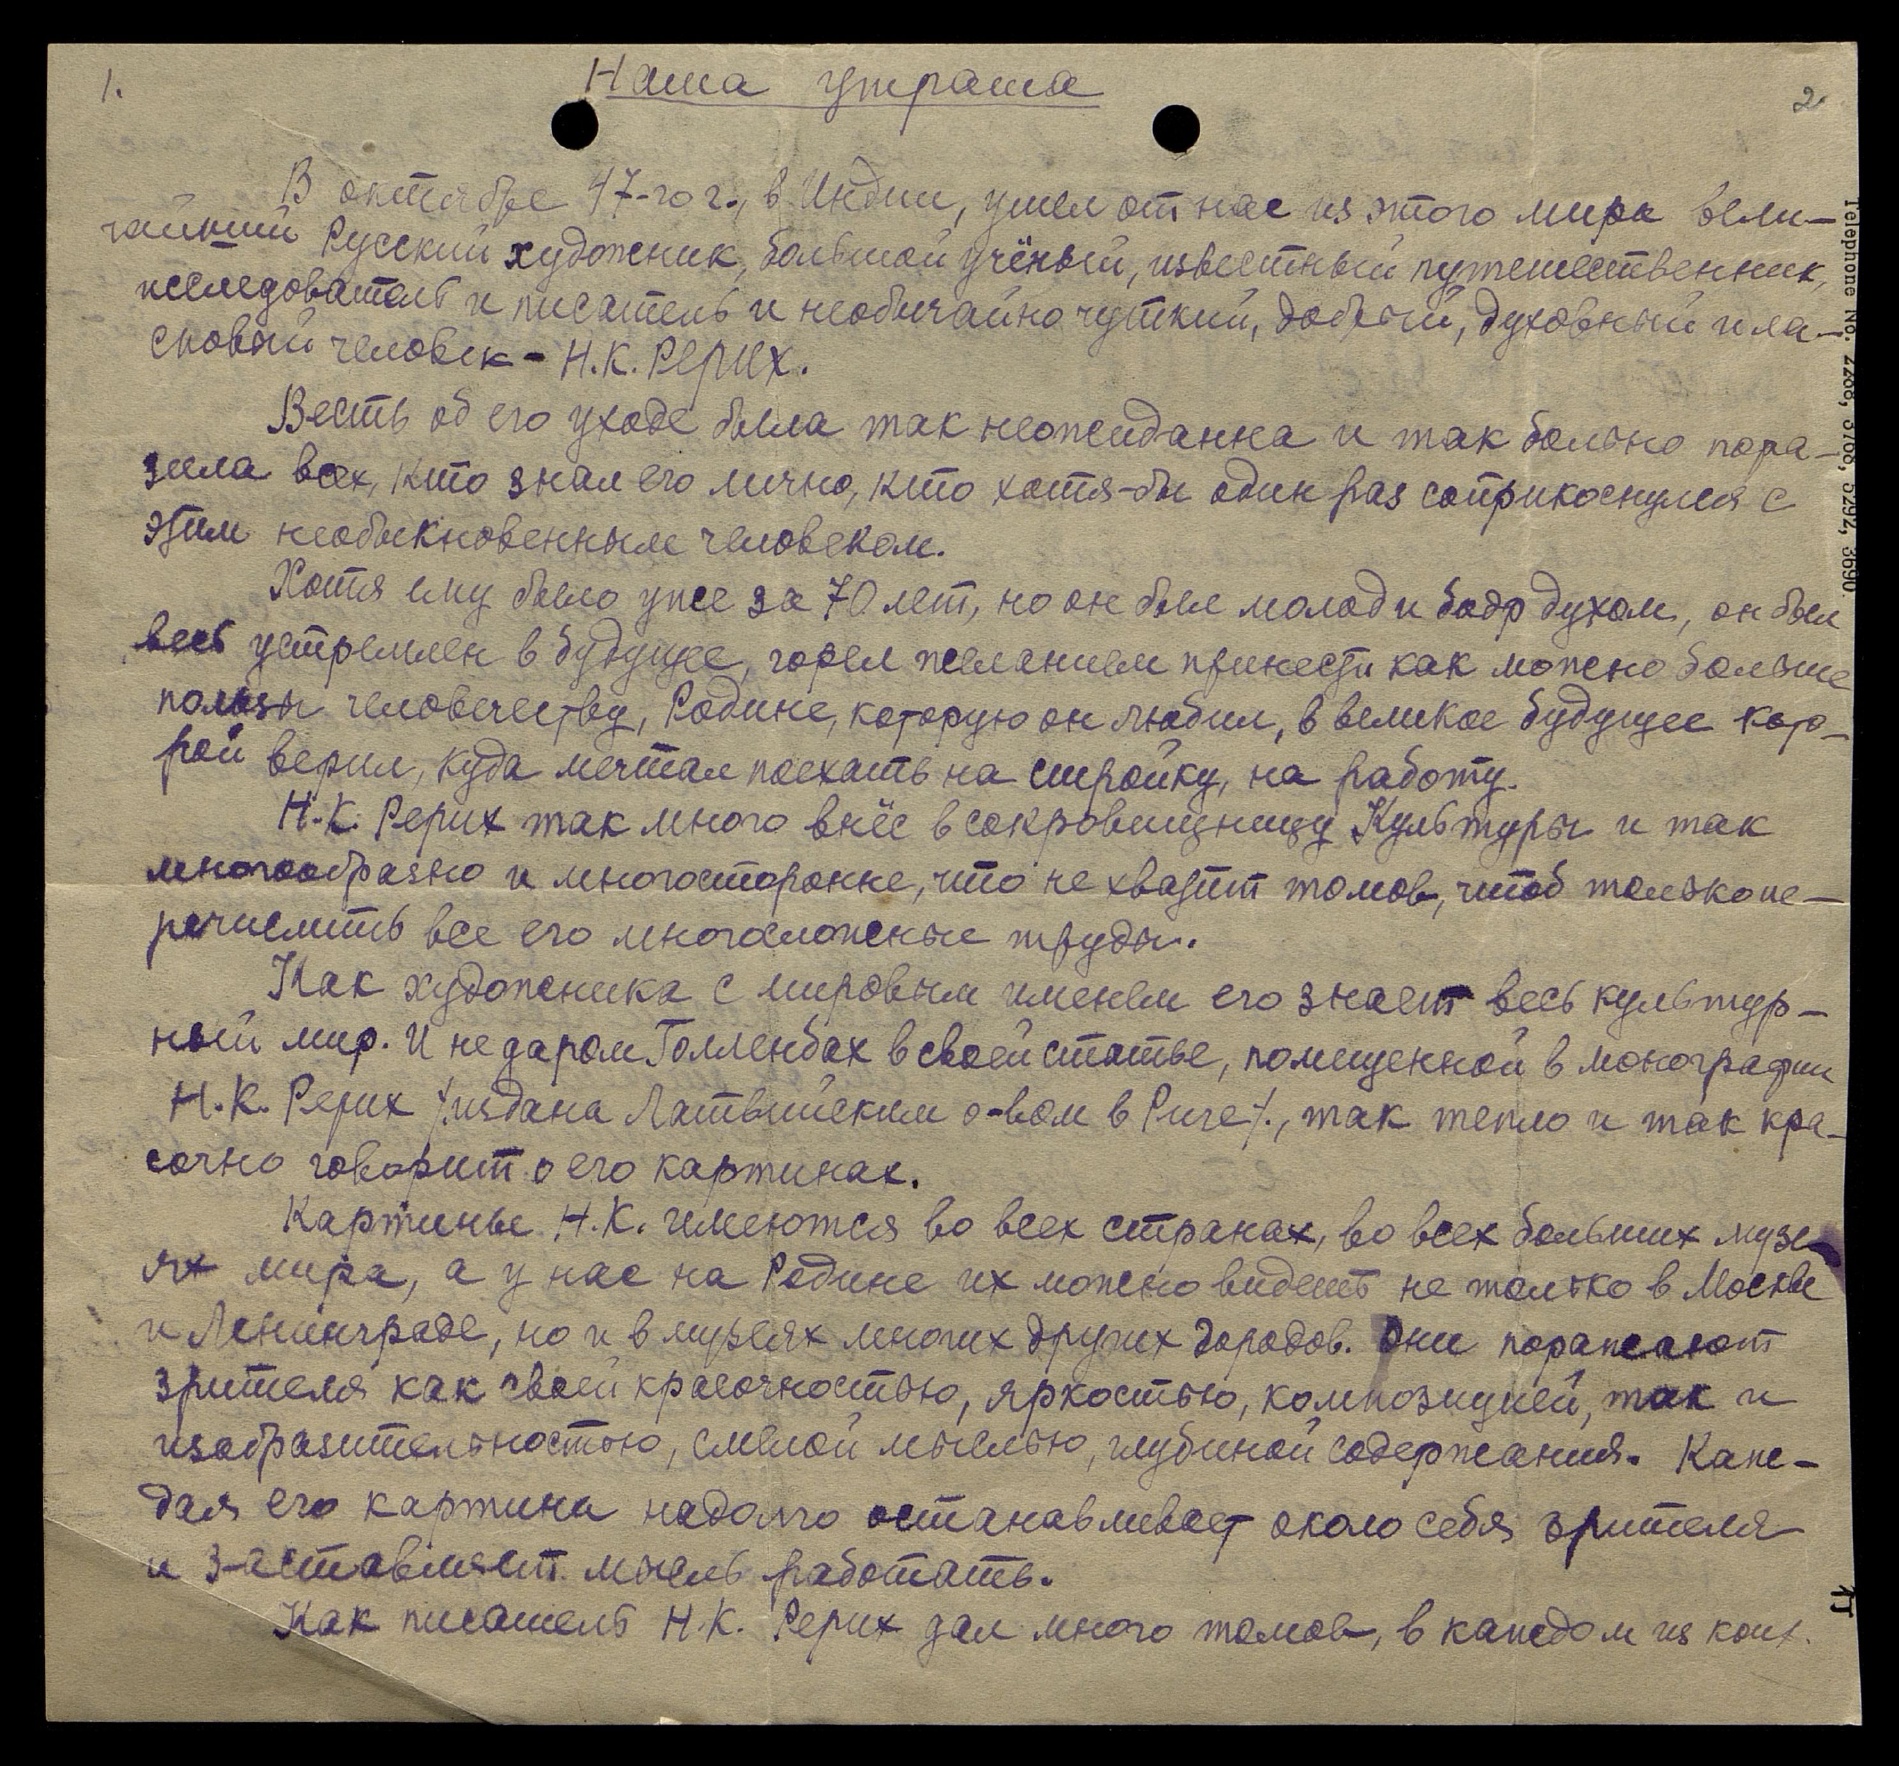 1.
Наша утрата
2
В октябре 47-го г., в Индии, ушел от нас из этого мира вели-
чайший Русский художник, большой учёный, известный путешественник,
исследователь и писатель и необычайно чуткий, добрый, духовный и ла-
сковый человек - Н.К. Рерих.
Весть об его уходе была так неожиданна и так больно пора-
зила всех, кто знал его лично, кто хотя-бы один раз соприкоснулся с
этим необыкновенным человеком.
Хотя ему было уже за 70 лет, но он был молод и бодр духом, он был
весь устремлен в будущее, горел желанием принести как можно больше
пользы человечеству, Родине, которую он любил, в великое будущее кото-
рой верил, куда мечтал поехать на стройку, на работу.
Н.К. Рерих так много внёс в сокровищницу Культуры и так
многообразно и многосторонне, что не хватит томов, чтоб только пе-
речислить все его многосложные труды.
Как художника с мировым именем его знает весь культур-
ный мир. И недаром Голленбах в своей статье, помещенной в монографии
Н.К. Рерих /.издана Латвийским о-вом в Риге/., так тепло и так кра-
сочно говорит о его картинах.
Картины Н.К. имеются во всех странах, во всех больших музе-
ях мира, а у нас на Родине их можно видеть не только в Москве
и Ленинграде, но и в музеях многих других городов. Они поражают
зрителя как своей красочностью, яркостью, композицией, так и
изобразительностью, смелой мыслью, глубиной содержания. Каж-
дая его картина надолго останавливает около себя зрителя
и заставляет мысль работать.
Как писатель Н.К. Рерих дал много томов, в каждом из коих
Telephone No. 2268, 3768, 5292, 3690.